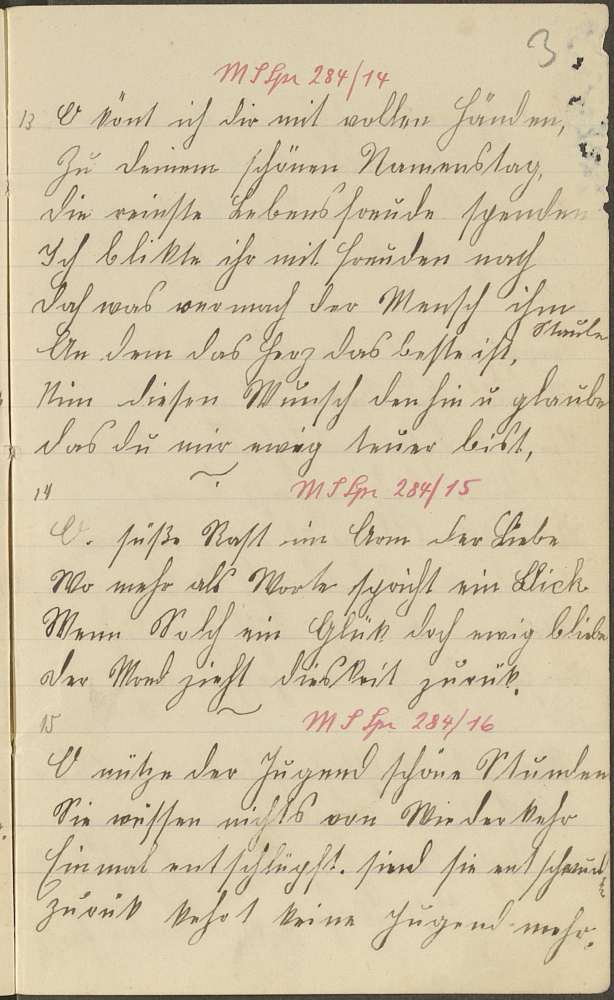 3
M S Spr 284/14
13 O könt ich dir mit vollen Händen,
Zu deinem schönen Namenstag,
die reinste Lebensfreude spenden
Ich blikte ihr mit freuden nach
doch was vermach der Mensch ihm
Staube
An dem das Herz das beste ist,
Nim diesen Wunsch den hin u glaube
das du mir ewig teuer bist,
14 M S Spr 284/15
O. süße Rast im Arm der Liebe
Wo mehr als Worte spricht ein Blick
Wenn Solch ein Glük doch ewig bliebe
der Mond zieht zurük.
15 M S Spr 284/16
O nütze der Jugend schöne Stunden
Sie wissen nichts von Wiederkehr
Einmal entschlüpft. sind sie entschwund
zurük kehrt keine Jugend mehr.